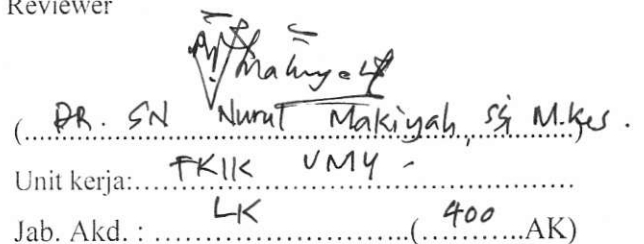 Reviewer
(DR. SN Nurul Makiyah, SSi M.Kes.)
Unit kerja:.....FKIK UMY.....
Jab. Akd. : .....LK.....(.....400.....AK)